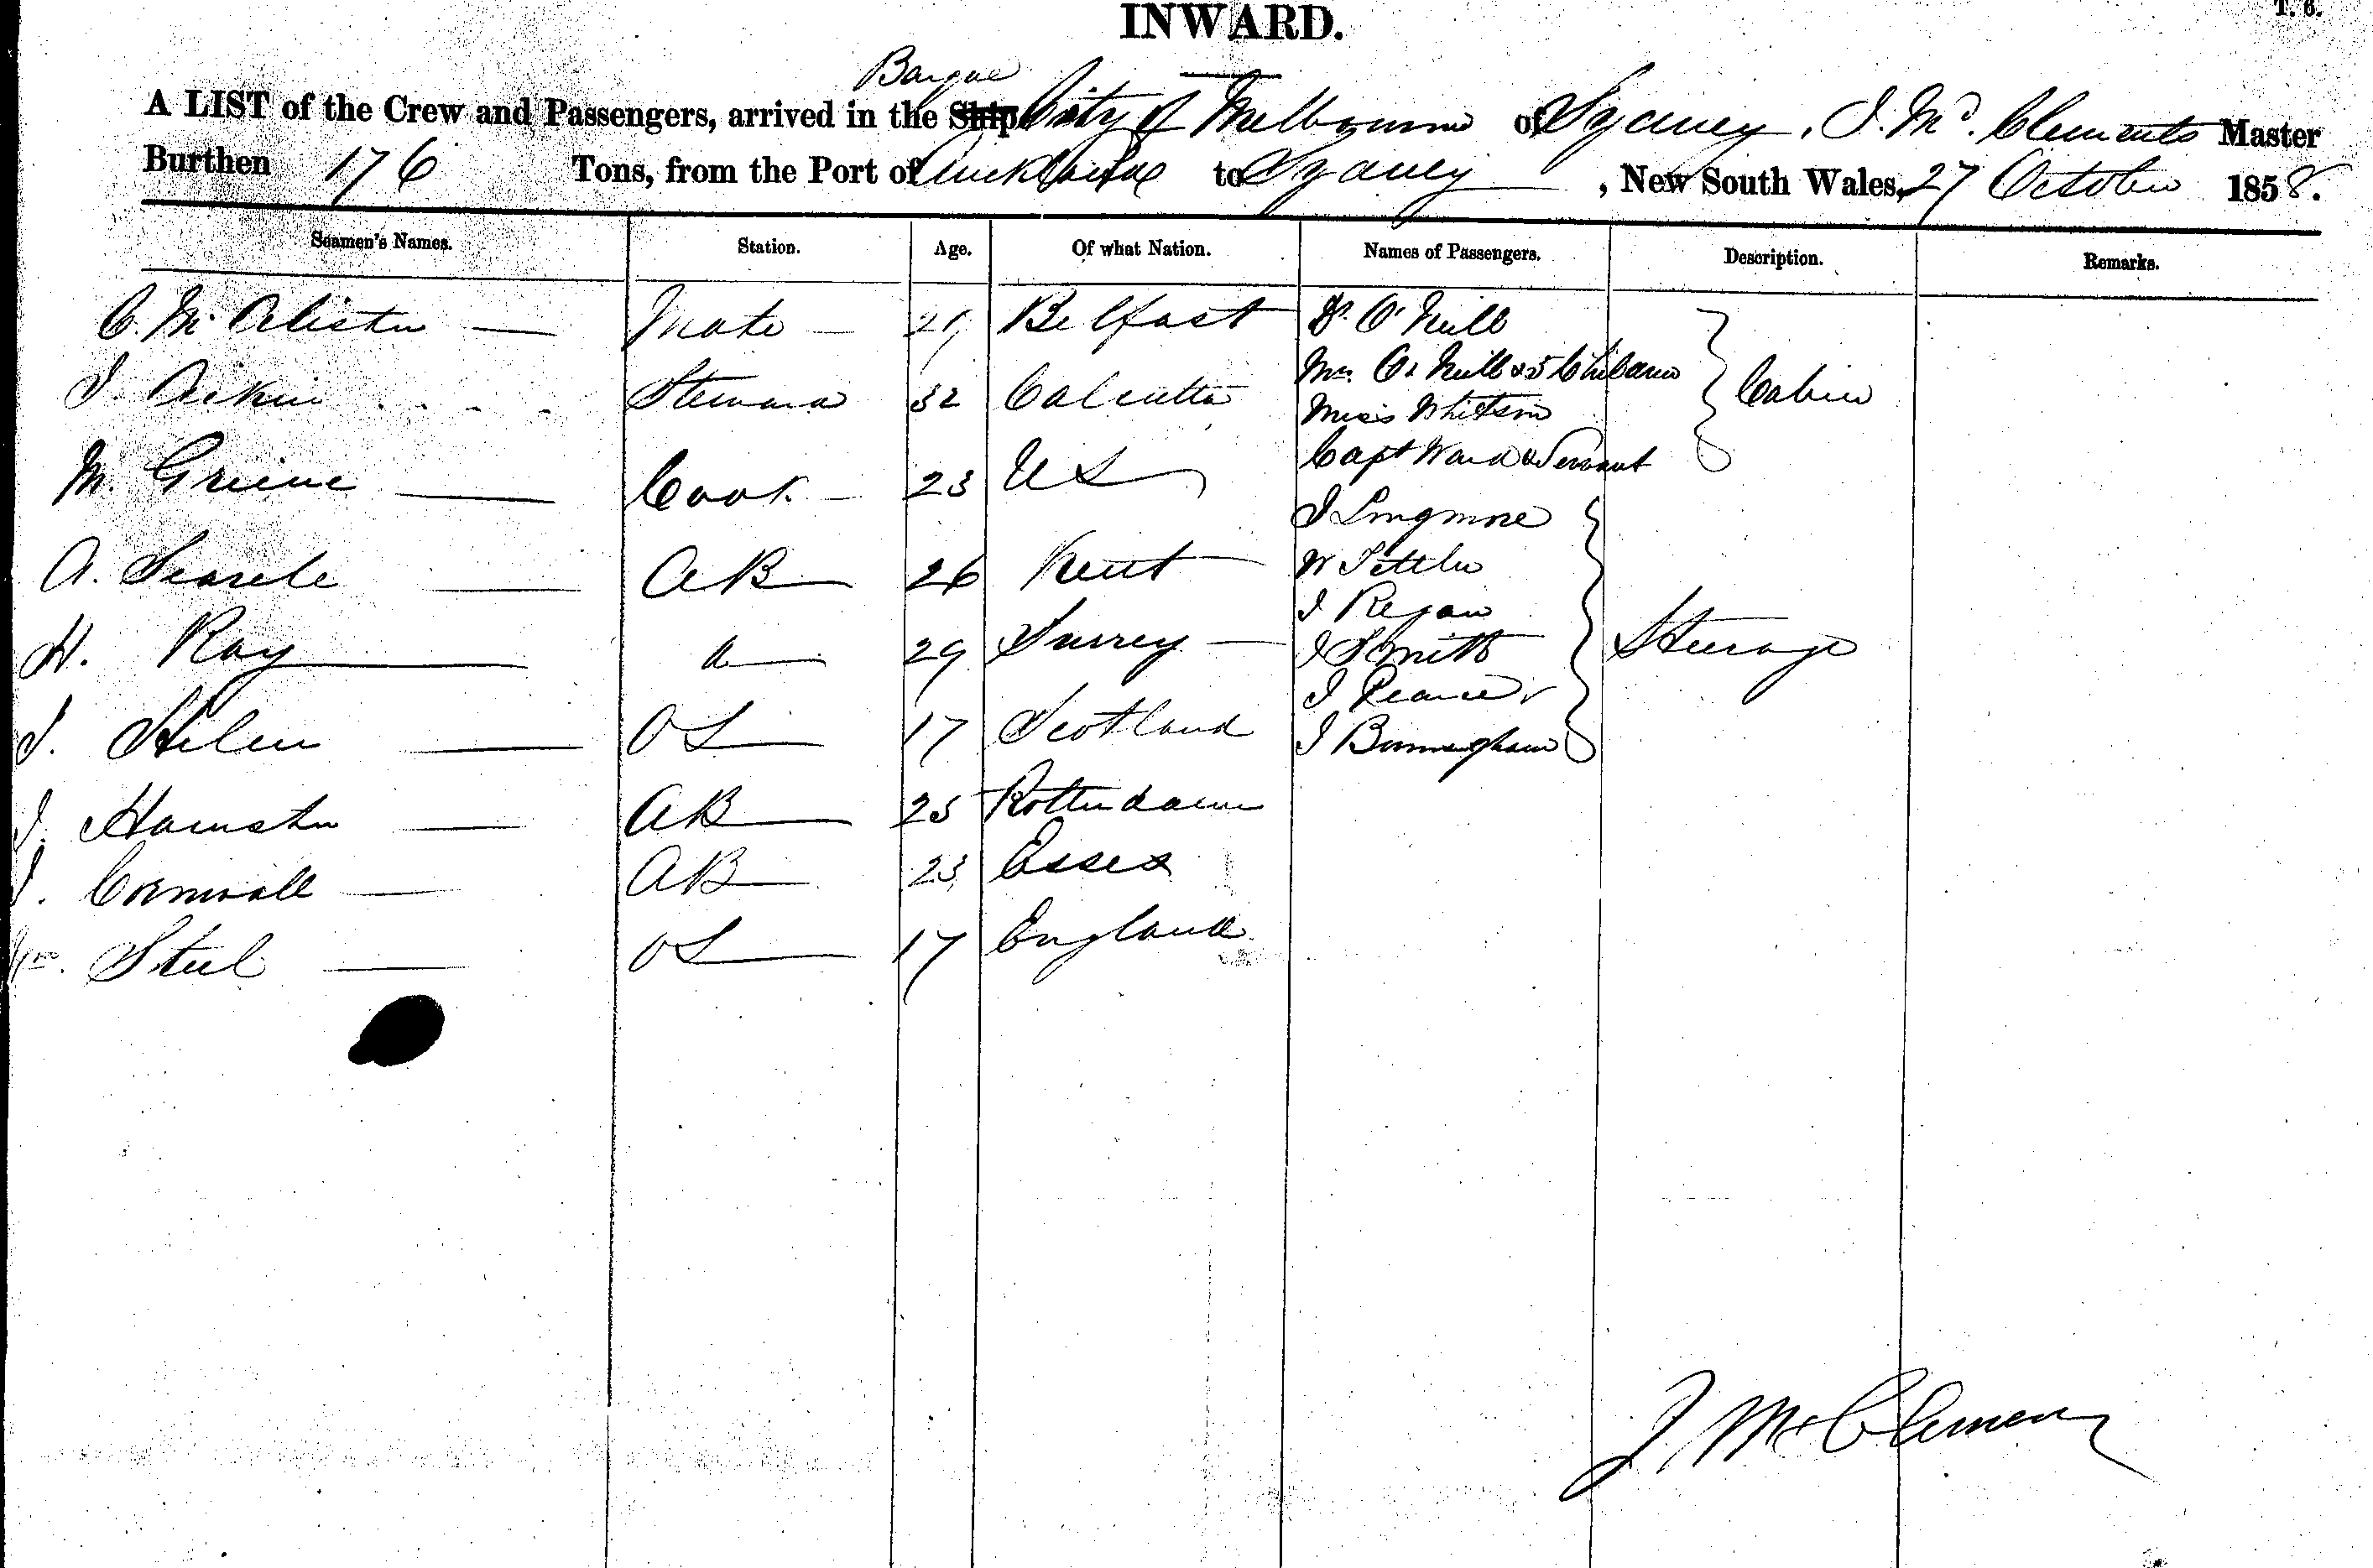 INWARD.
T. 6.
Barque
A LIST of the Crew and Passengers, arrived in the Ship City of Melbourne of Sydney, J. Mc. Clements Master
Burthen 176 Tons, from the Port of Auckland to Sydney, New South Wales, 27 October 1858.
Seamen's Names. Station. Age. Of what Nation. Names of Passengers. Description. Remarks.
C. Mc Alister Mate 21 Belfast
Dr. O'Neill
Mrs. O'Neill & 5 Children
J. Aikin Steward 32 Calcutta
Miss Whitson
Cabin
Capt Ward & Servant
M. Greene Cook 23 US
J Longmore
A. Searele AB 26 Kent
W Tettler
J Regan
H. Ray a 29 Surrey
J Smith
Steerage
J Pearce
J. Helen OS 17 Scotland
J Birmingham
J. Hamster AB 25 Rotterdam
J. Cornwall AB 23 Essex
Wm. Steel OS 17 England
J McClemens